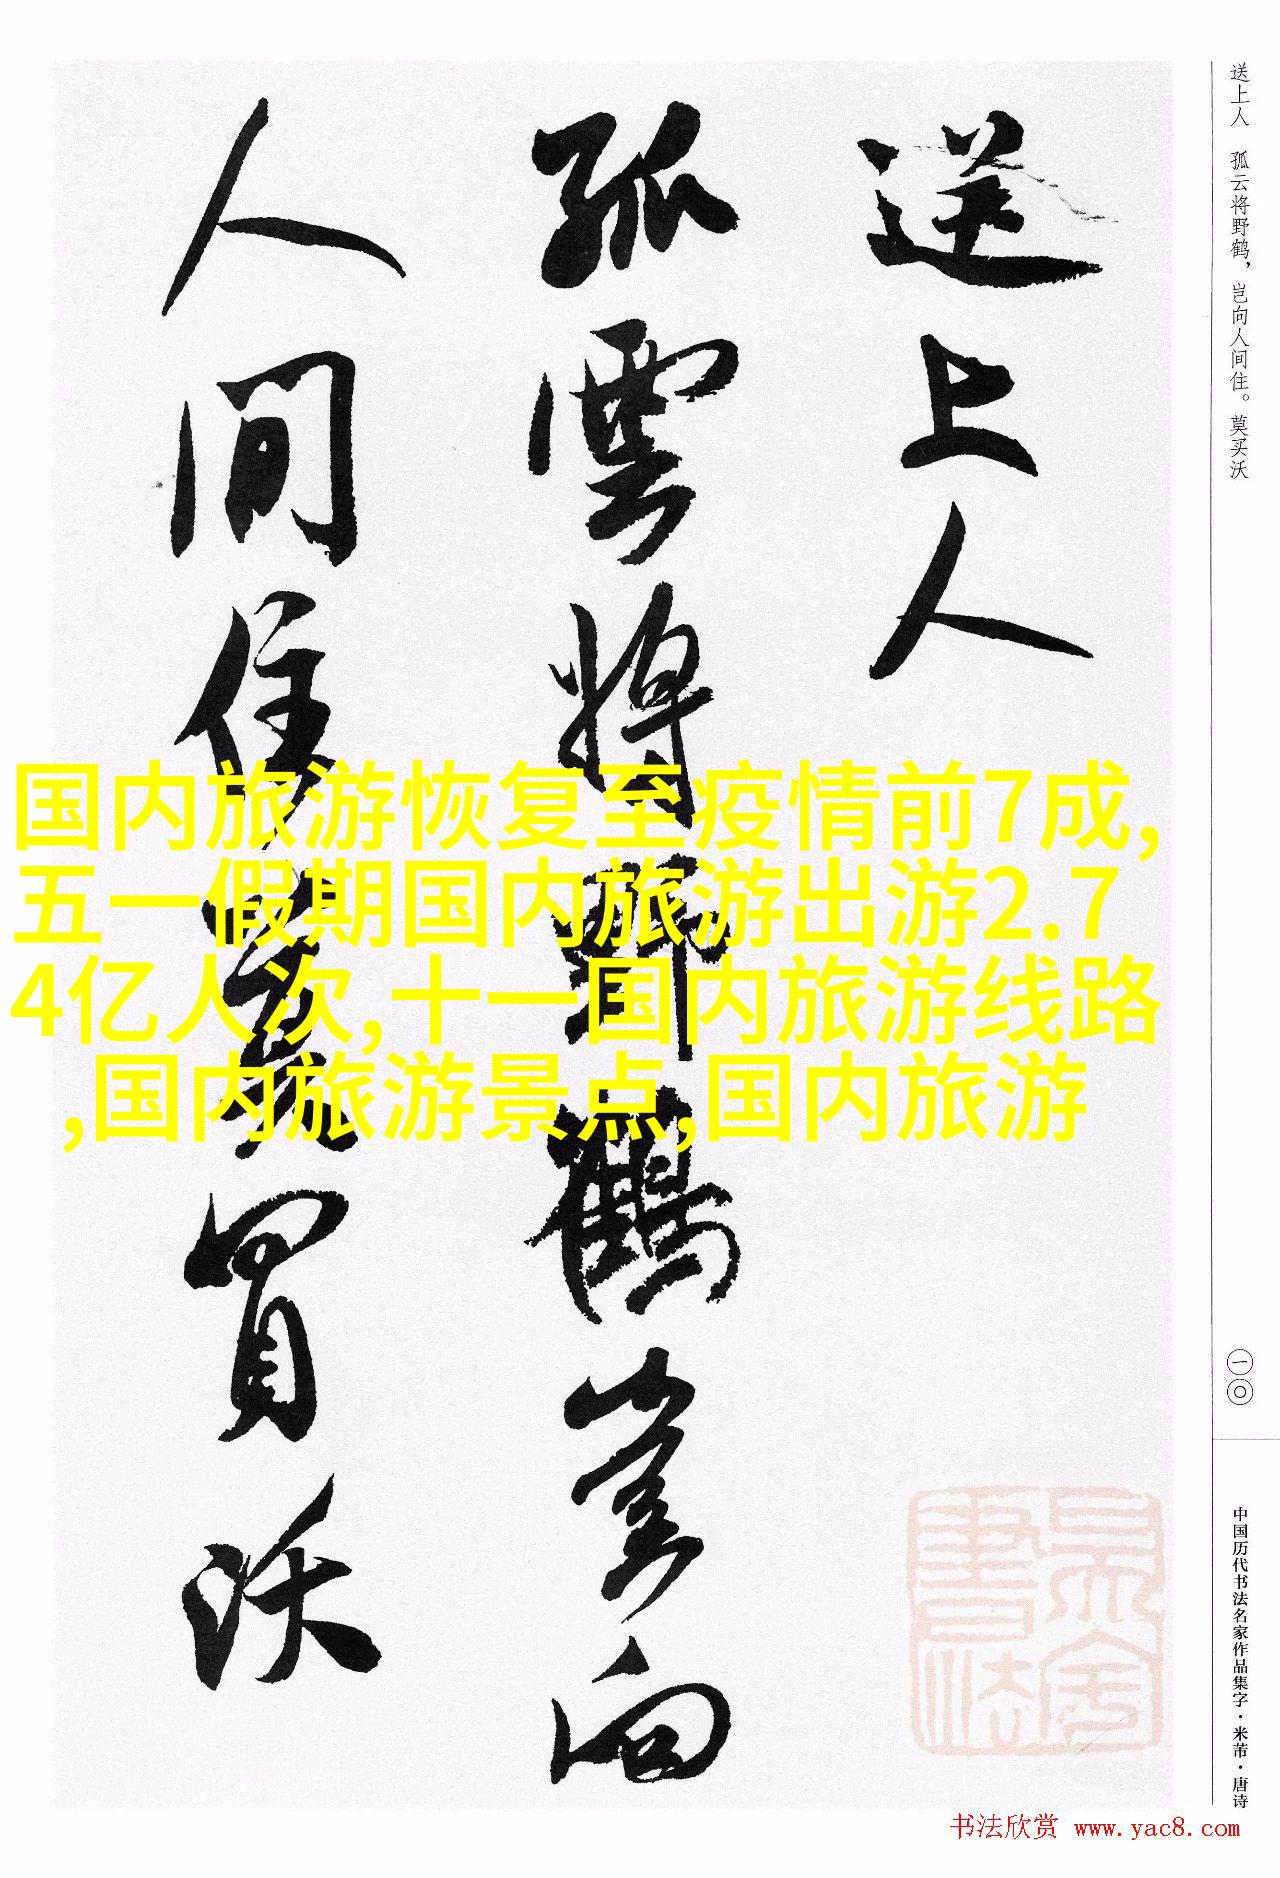 送上人　孤云将野鹤，岂向人间住。莫买沃
一〇
中国历代书法名家作品集字·米芾·唐诗
送上人
孤雲將野鶴豈向
人間住莫買沃
国内旅游恢复至疫情前7成,
五一假期国内旅游出游2.7
4亿人次,十一国内旅游线路
,国内旅游景点,国内旅游
书法欣赏 www.yac8.com